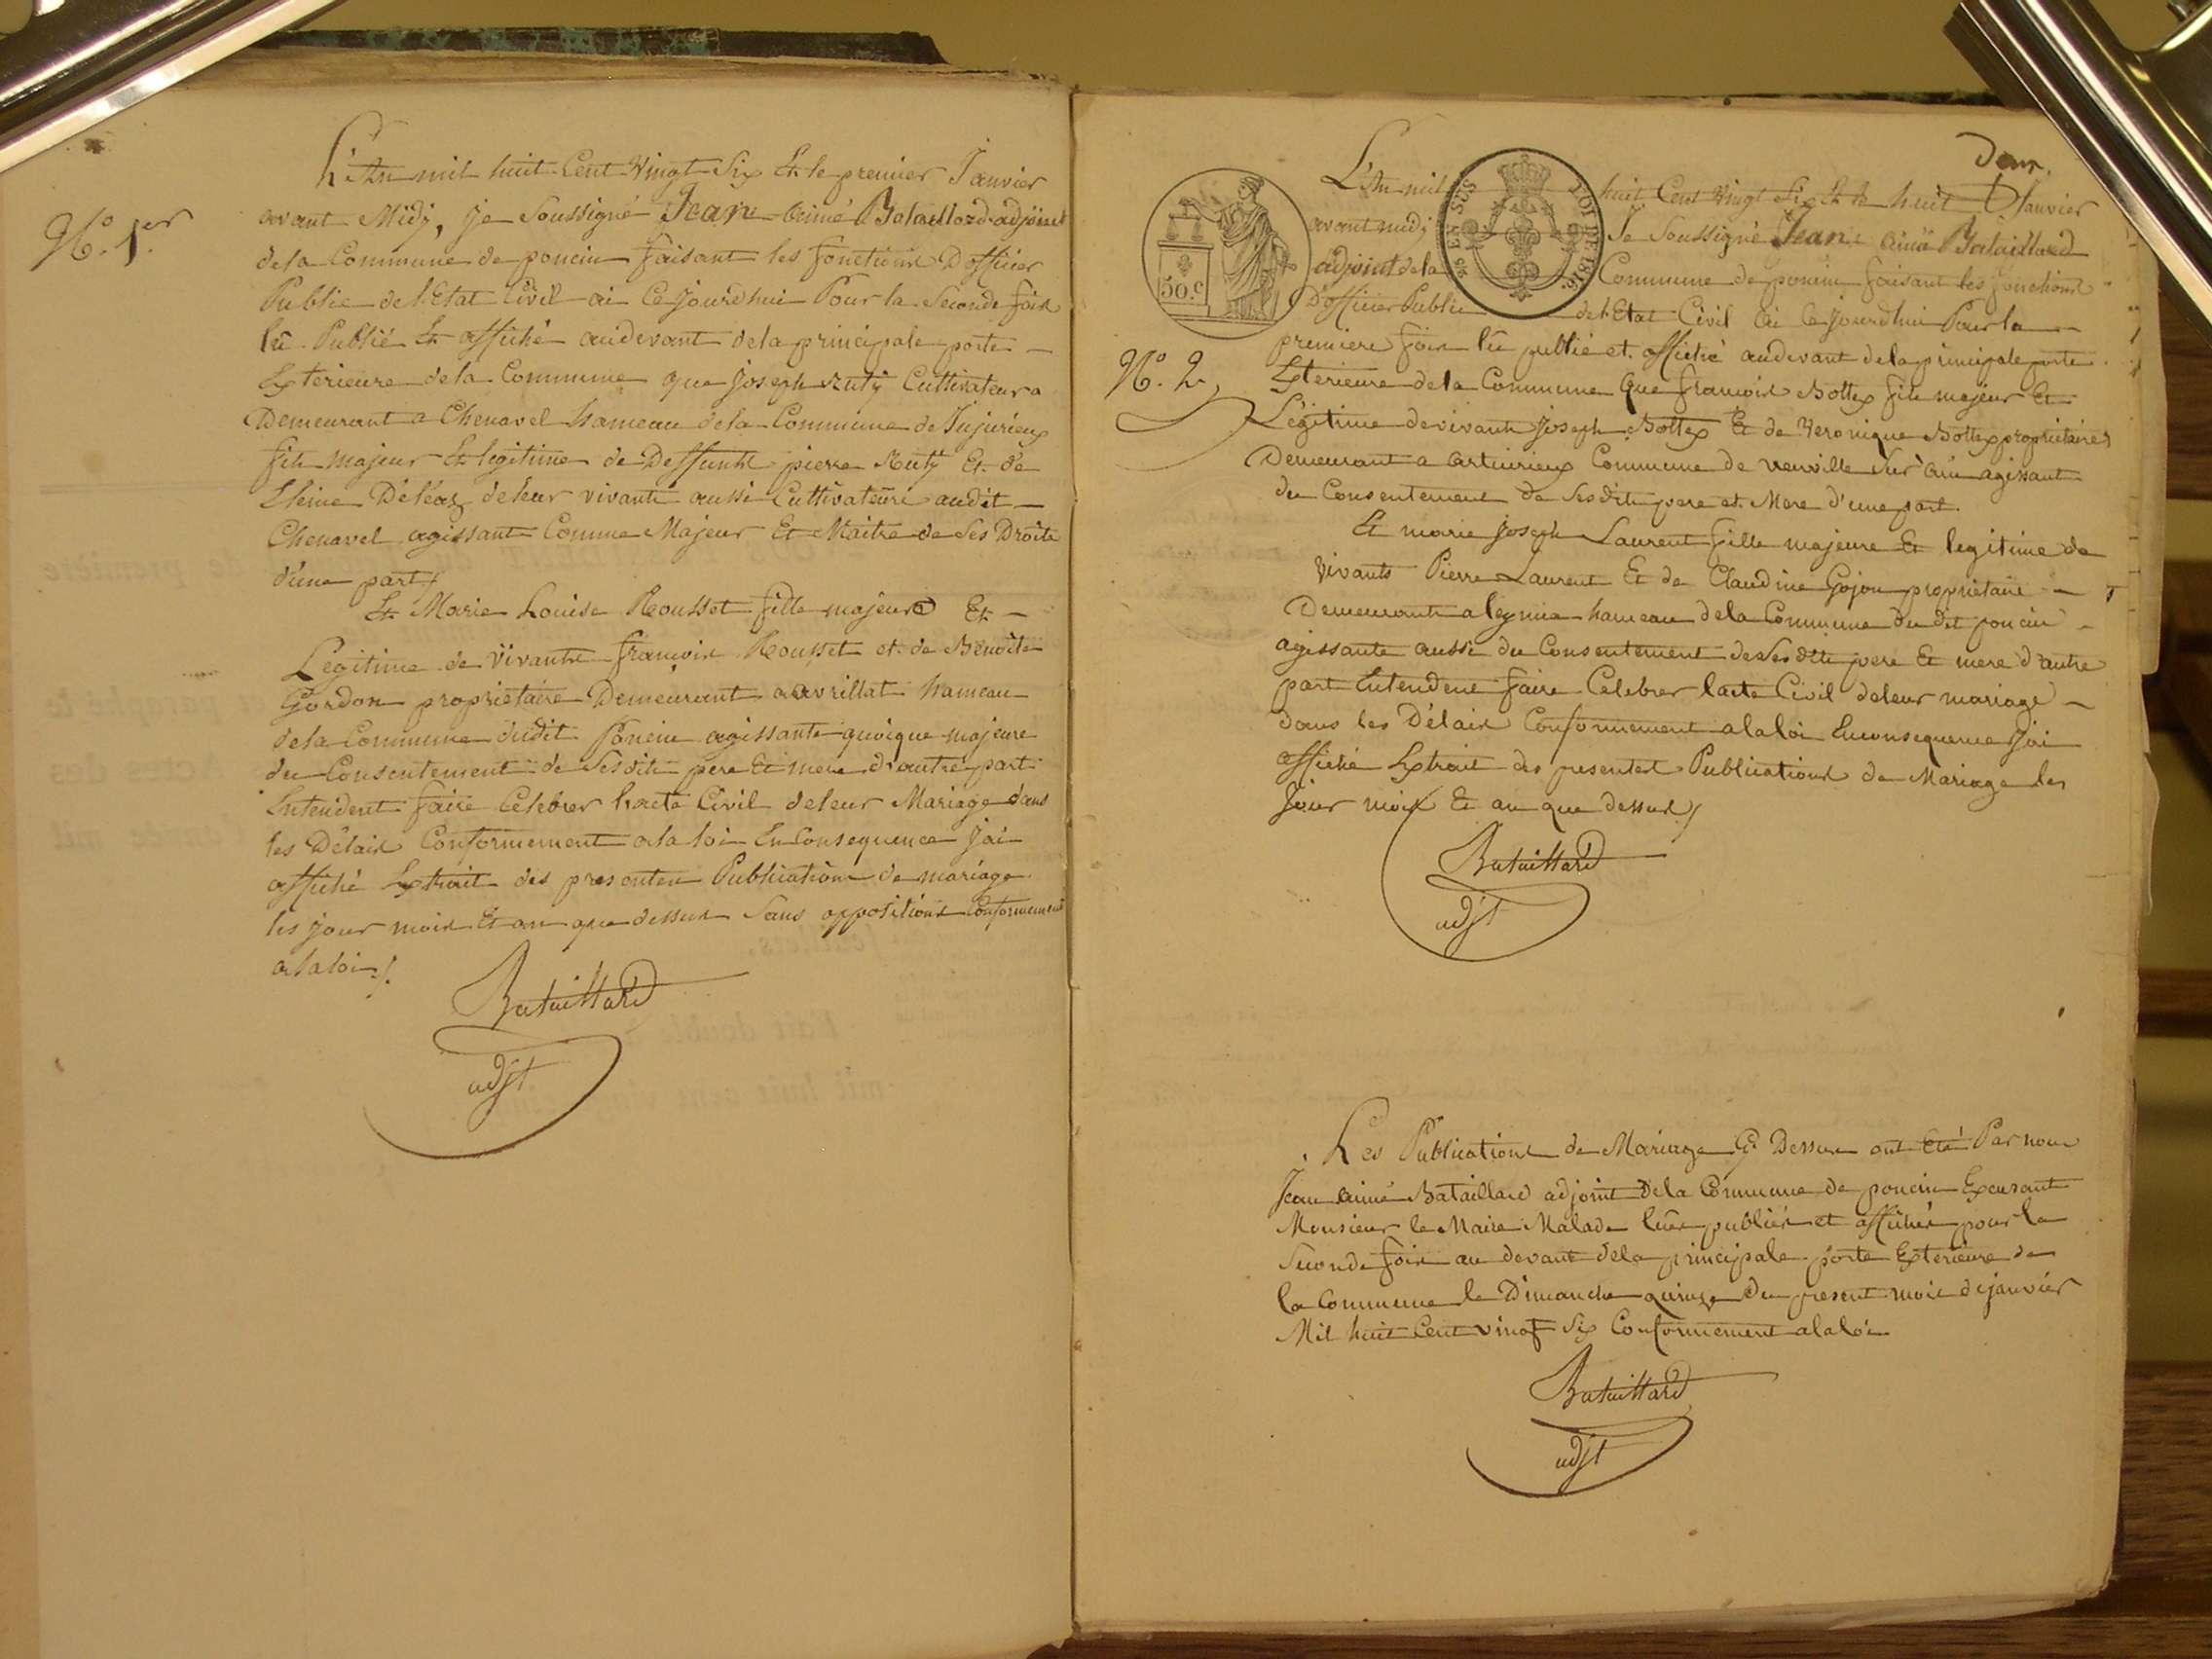 N.º 1.er
L'An mil huit Cent Vingt Six Et le premier Janvier
avant Midy, Je Soussigné Jean-Aimé Bataillard adjoint
dela Commune de poncin faisant les fonctions D'officier
Public de l'Etat Civil ai Cejourdhui Pour la Seconde fois
lû Publié Et affiché audevant dela principale porte
Exterieure dela Commune que Joseph Ruty Cultivateur
Demeurant a Chenavel hameau dela Commune de Jujurieux
fils majeur Et legitime de Deffunts pierre Ruty Et de
deleur vivants aussi Cultivateurs audit
Chenavel agissant Comme Majeur Et Maitre de Ses Droits
d'une part /
Et Marie Louise Rousset fille majeure Et
Legitime de Vivants françois Rousset et de Benoite
Gordon propriétaire Demeurant a avrillat hameau
dela Commune dudit Poncin agissante quoique majeure
du Consentement de Sesdits pere Et mere d'autre part
Entendent faire Célébrer L'acte Civil deleur Mariage dans
les Délais Conformement ala loi En Consequence Jai
affiché Extrait des presentes Publications de mariage
les jour mois Et an que dessus Sans oppositions Conformement
alaloi /.
Bataillard
adjt
deux.
EN SUS
LOI DE 1816.
50.c
L'An mil huit Cent Vingt Six Et le huit Janvier
avant midi Je Soussigné Jean aimé Bataillard
adjoint dela Commune de poncin faisant les fonctions
D'officier Public del'Etat Civil ai Cejourdhui Pour la
premiere fois lû publié et affiché audevant dela principale porte
N.º 2,
Exterieure dela Commune Que françois Bottex fils majeur Et
Légitime devivants Joseph Bottex Et de Veronique Bottex propriétaires
Demeurant a Commune de neuville Sur ain agissant
du Consentement de Sesdits pere et Mere d'une part.
Et marie Joseph Laurent fille majeure Et legitime de
Vivants Pierre Laurent Et de Claudine Gojon propriétaire
Demeurants a leymia hameau dela Commune du dit poncin
agissante aussi du Consentement deSesdits pere Et mere d'autre
part Entendent faire Célébrer lacte Civil deleur mariage
dans les Délais Conformement alaloi Enconsequence Jai
affiché Extrait des presentes Publications de Mariage les
Jour mois Et an que dessus /
Bataillard
adjt
Les Publications de Mariage Cy Dessus ont Eté Par nous
Jean aimé Bataillard adjoint dela Commune de poncin Excusant
Monsieur le Maire Malade lues publiées et affichées pour la
Seconde fois au devant dela principale porte Exterieure de
la Commune le Dimanche quinze Du present mois dejanvier
Mil huit Cent vingt Six Conformement alaloi
Bataillard
adjt